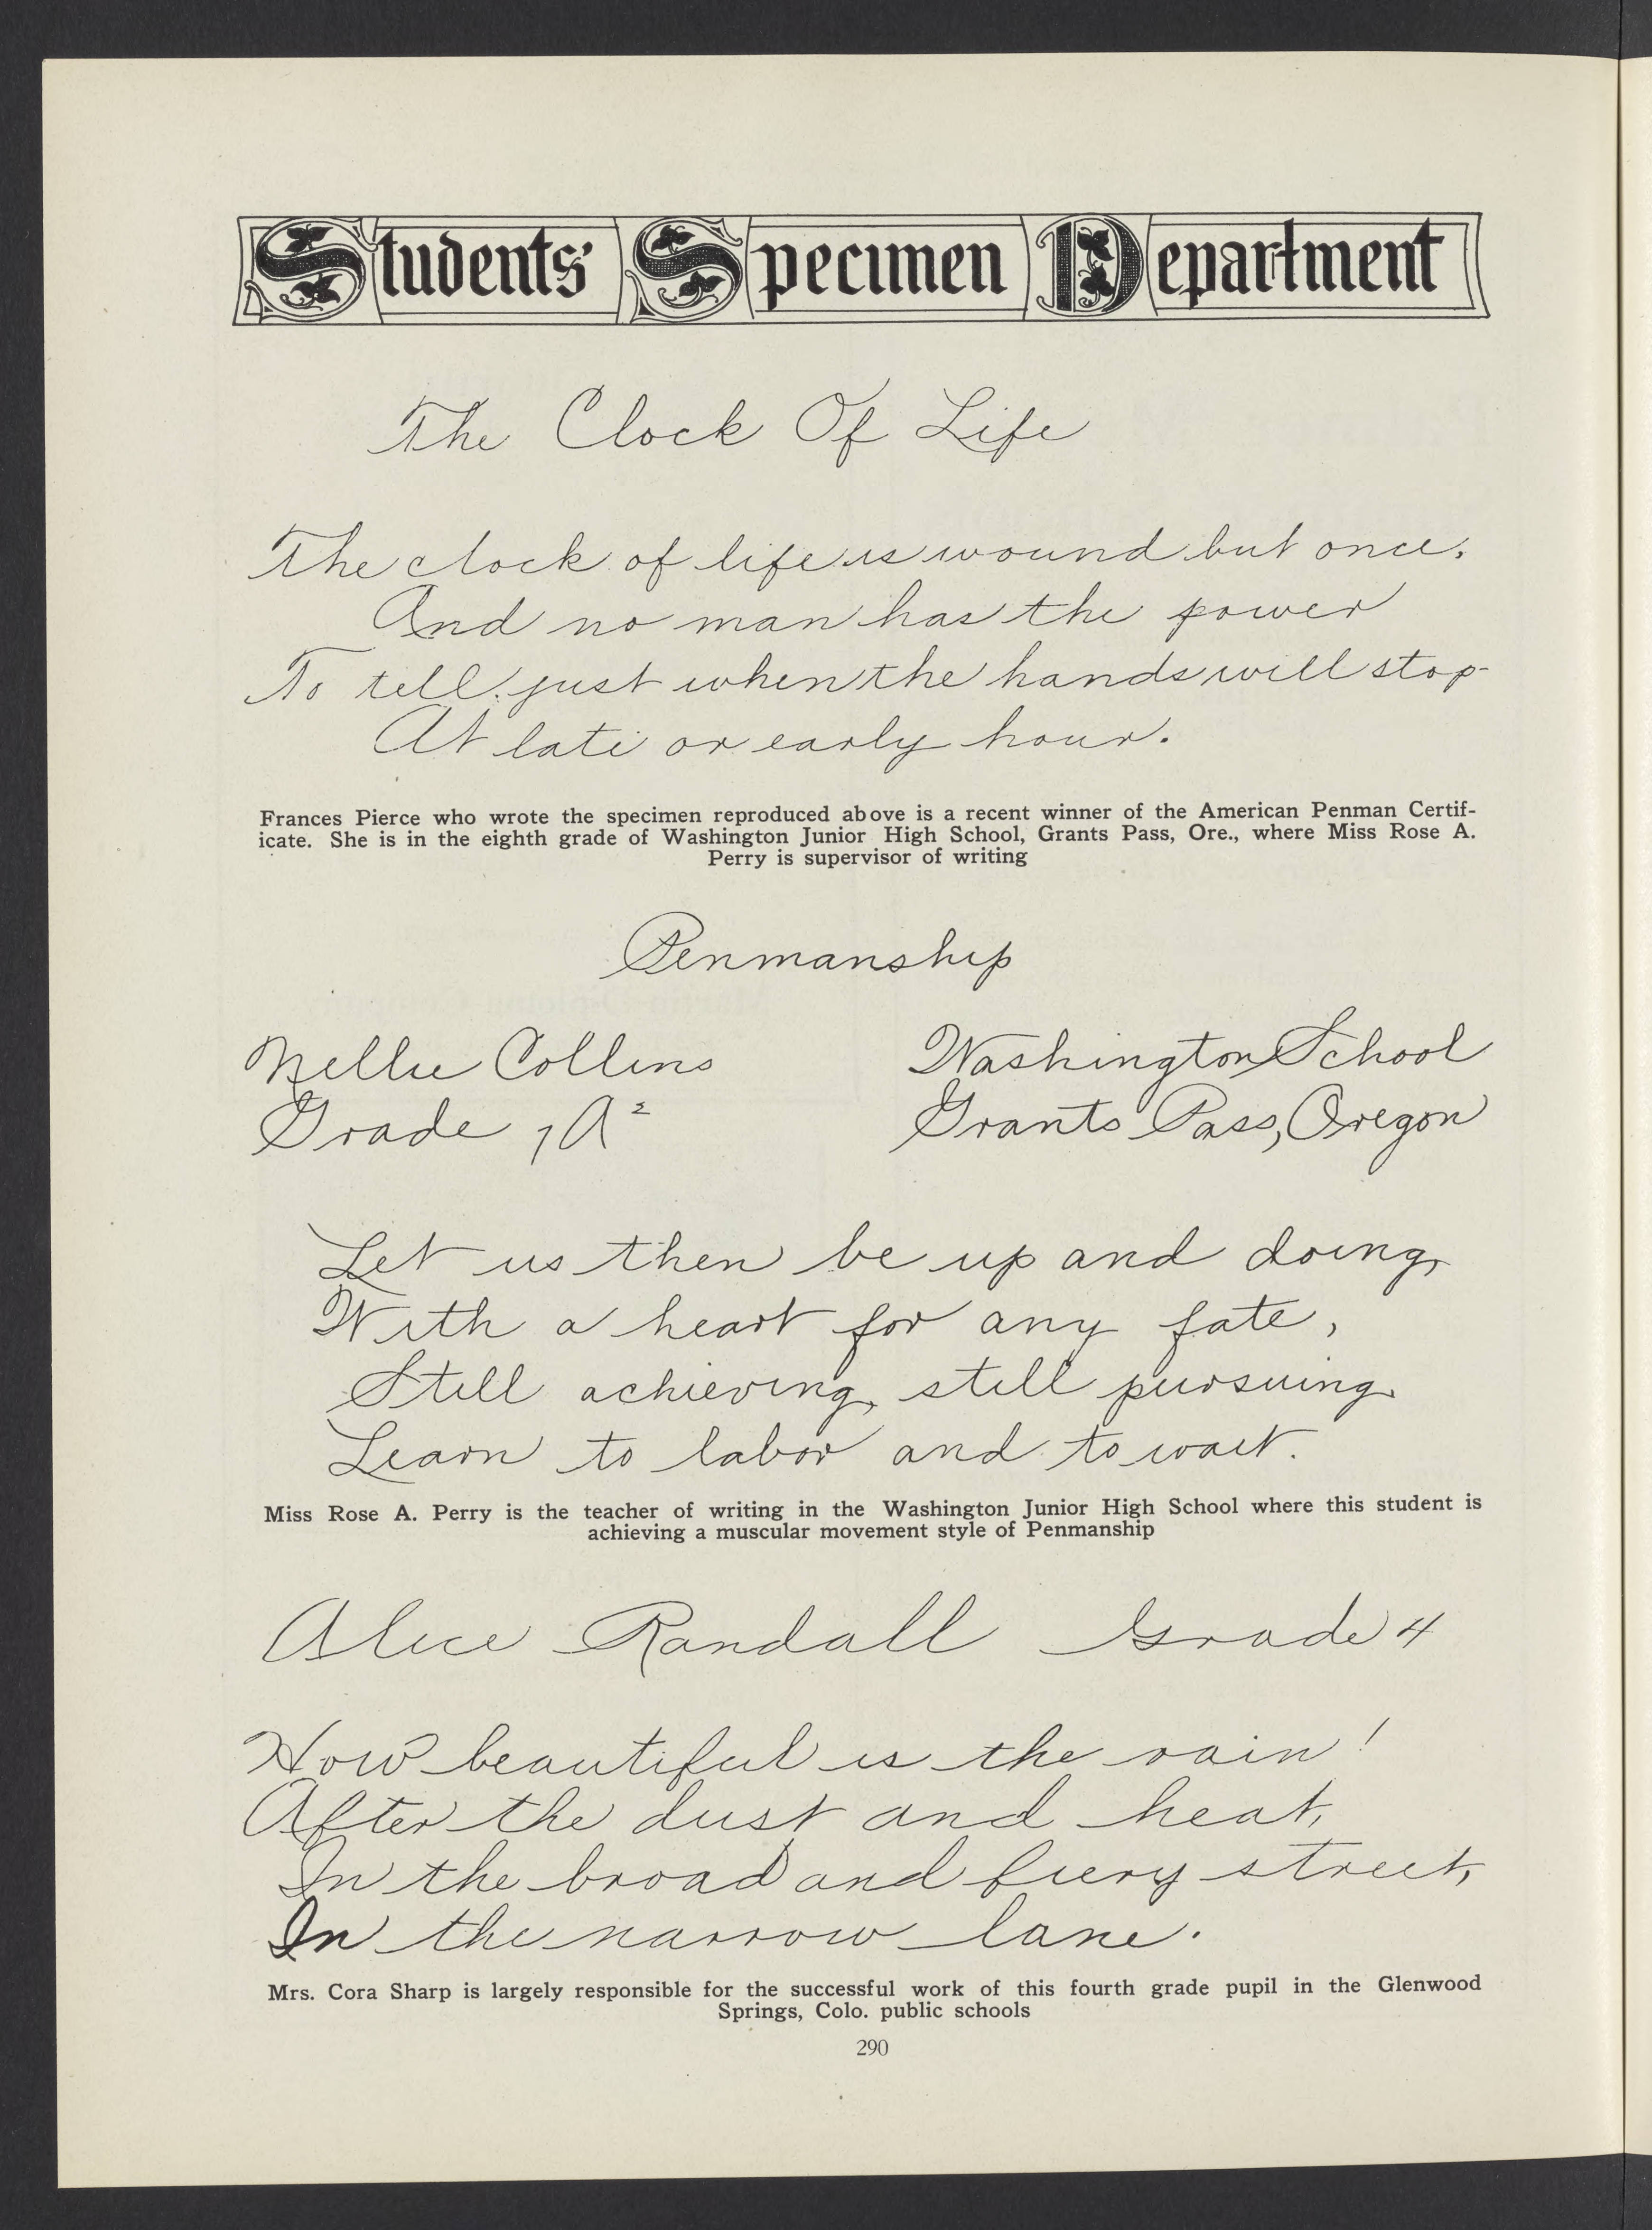 Students' Specimen Department
The Clock Of Life
The clock of life is wound but once,
And no man has the power
To tell just when the hands will stop-
At late or early hour.
Frances Pierce who wrote the specimen reproduced above is a recent winner of the American Penman Certif-
icate. She is in the eighth grade of Washington Junior High School, Grants Pass, Ore., where Miss Rose A.
Perry is supervisor of writing
Penmanship
Nellie Collins
Grade 7A²
Washington School
Grants Pass, Oregon
Let us then be up and doing,
With a heart for any fate,
Still achieving, still pursuing,
Learn to labor and to wait.
Miss Rose A. Perry is the teacher of writing in the Washington Junior High School where this student is
achieving a muscular movement style of Penmanship
Alice Randall Grade 4
How beautiful is the rain!
After the dust and heat,
In the broad and fiery street,
In the narrow lane.
Mrs. Cora Sharp is largely responsible for the successful work of this fourth grade pupil in the Glenwood
Springs, Colo. public schools
290